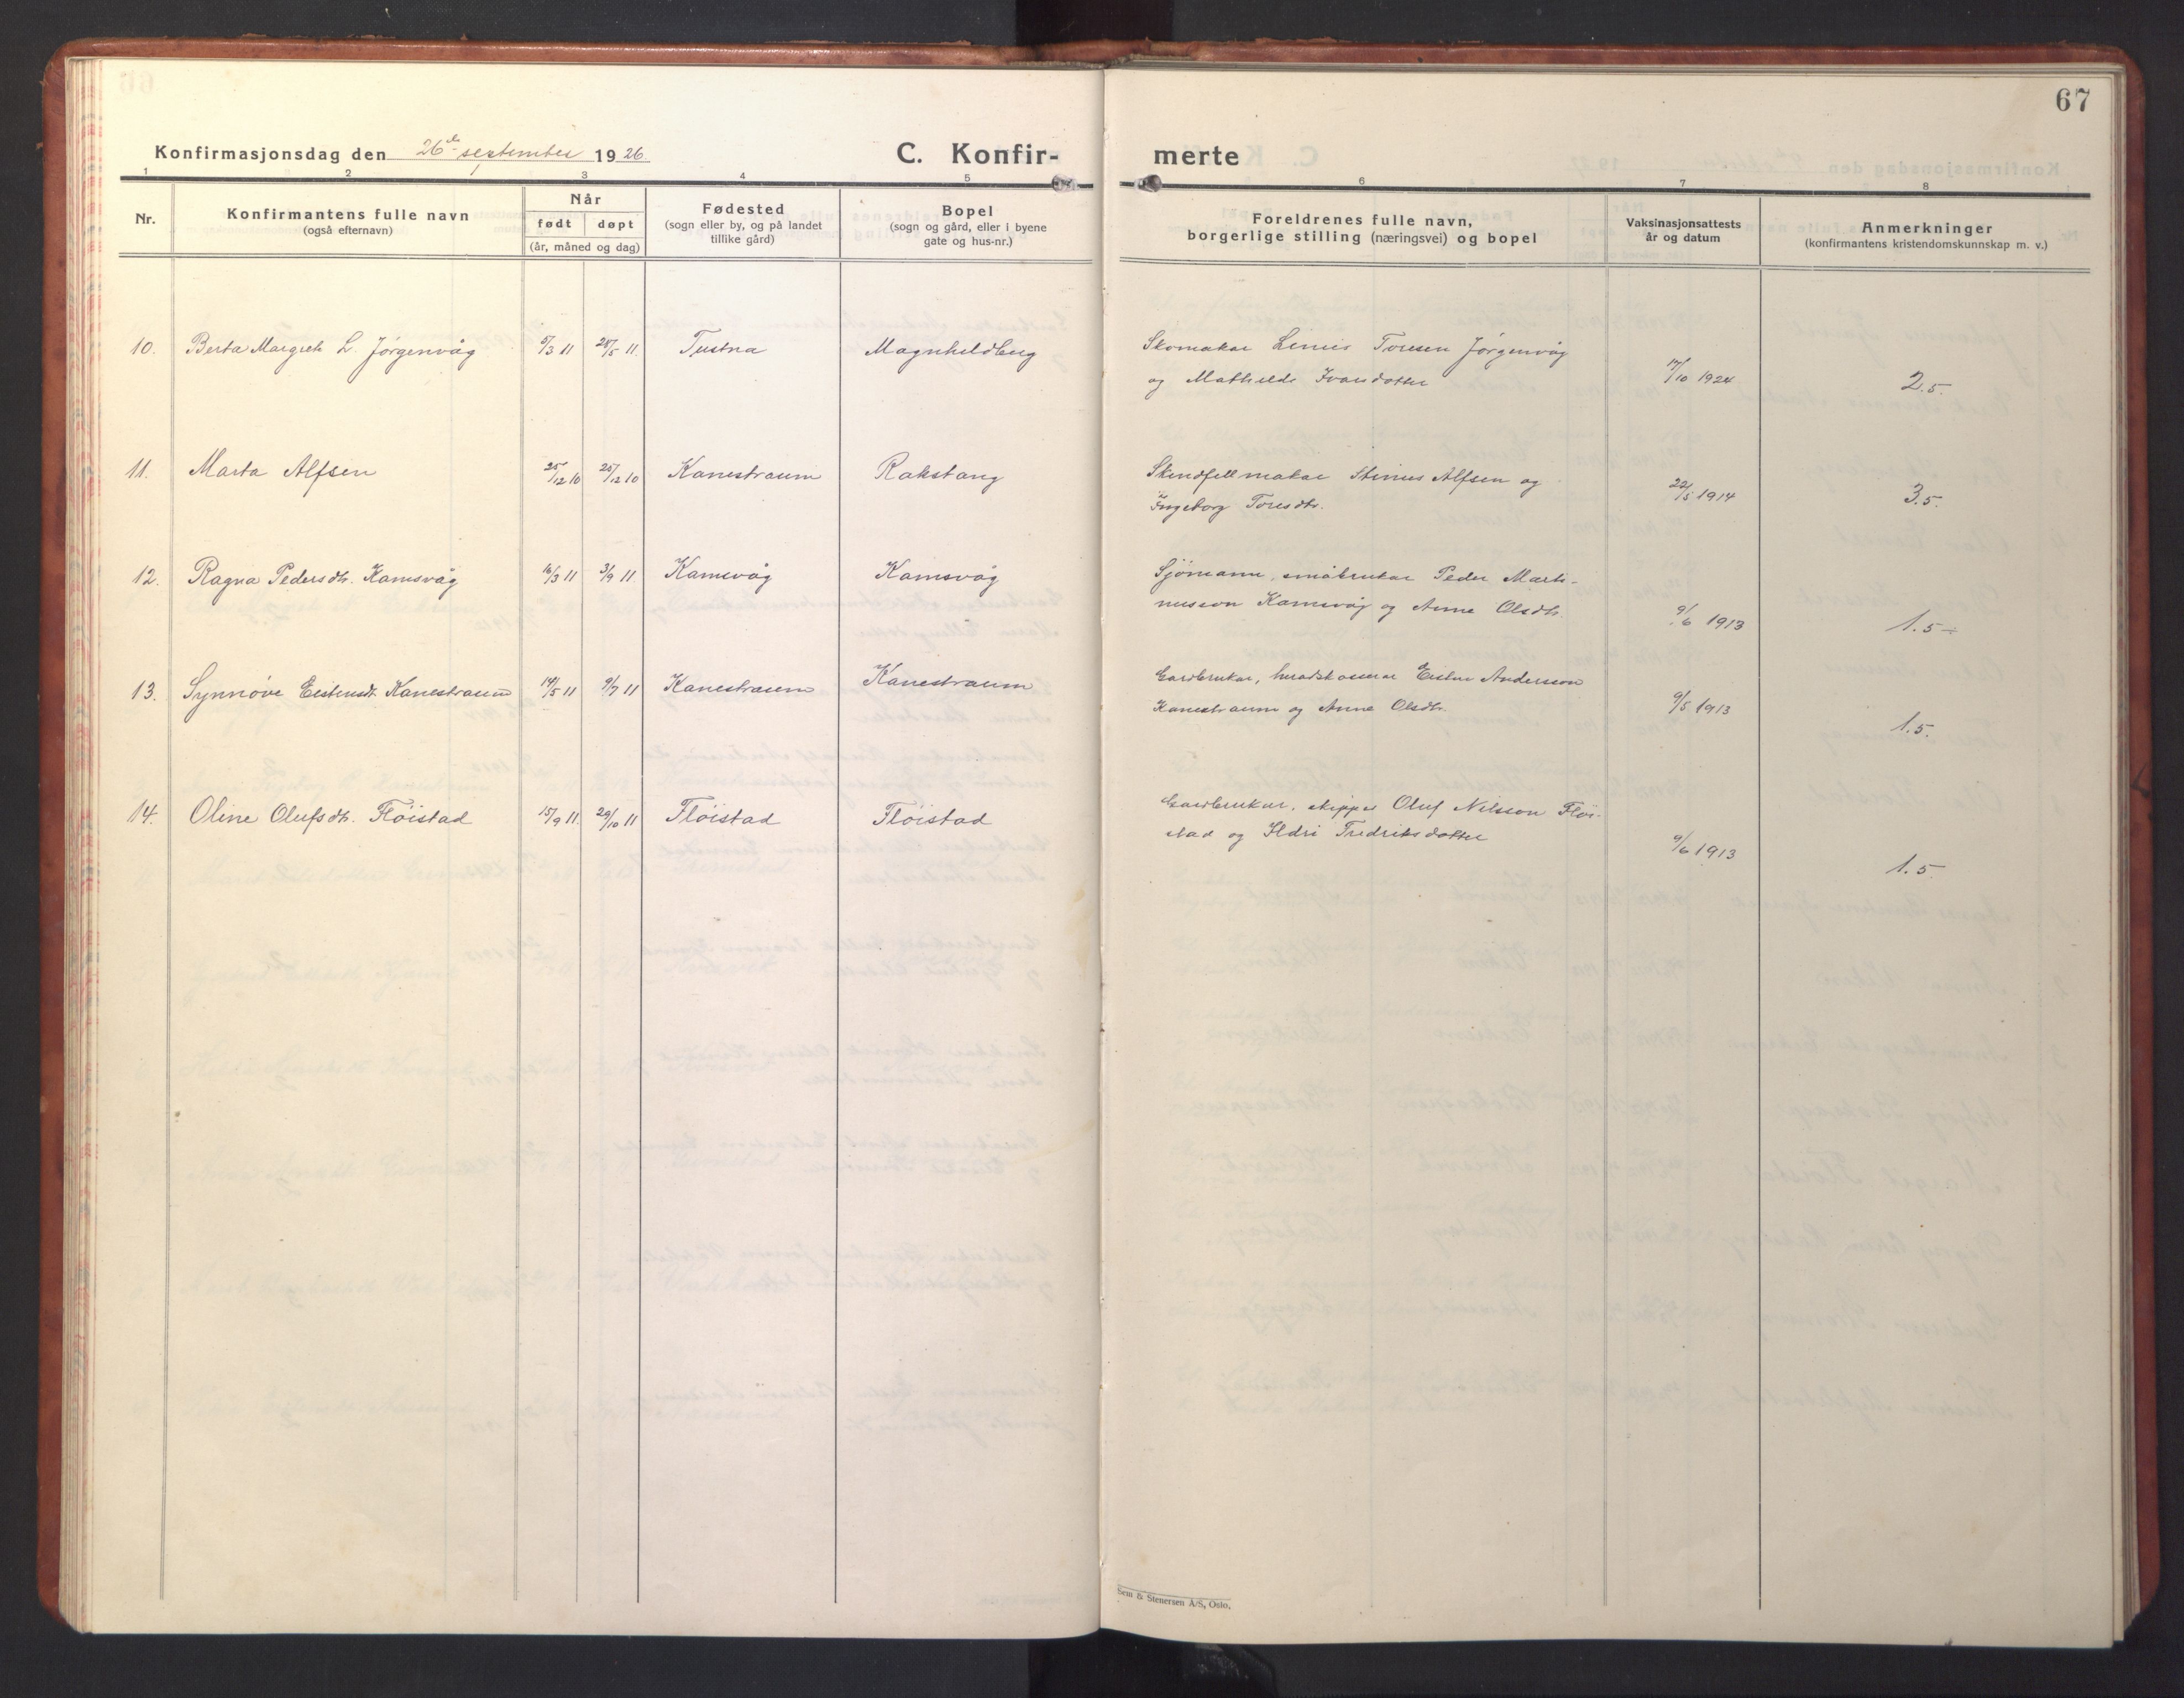 67
Konfirmasjonsdag den 26de september 1926
C. Konfir- merte
1 2 3 4 5 6 7 8
Nr.
Konfirmantens fulle navn
(også efternavn)
Når
født døpt
(år, måned og dag)
Fødested
(sogn eller by, og på landet
tillike gård)
Bopel
(sogn og gård, eller i byene
gate og hus-nr.)
Foreldrenes fulle navn,
borgerlige stilling (næringsvei) og bopel
Vaksinasjonsattests
år og datum
Anmerkninger
(konfirmantens kristendomskunnskap m. v.)
10. Berta Margrete L. Jørgenvåg /3 11 /5 11. Tustna Magnhildberg
Skomakar Linus Toresen Jørgenvåg
og Mathilde Ivarsdotter
17/10 1924
2.5.
11. Marta Alfsen 25/12 10 25/12 10 Kanestraum Rakstang
Skindfellmakar Stinus Alfsen og
Ingeborg Toresdtr.
22/5 1914
3.5.
12. Ragna Pedersdtr. Kamsvåg 16/3 11 3/9 11. Kamsvåg Kamsvåg
Sjömann, småbrukar Peder Marti-
nusson Kamsvåg og Anne Olsdtr.
9/6 1913
1.5
13. Synnöve Eistensdt. Kanestraum 14/5 11 9/7 11 Kanestraum Kanestraum
Gardbrukar, heradskasserar Eisten Andersson
Kanestraum og Anne Olsdtr.
9/5 1913
1.5.
14. Oline Olufsdtr. Flöistad 15/9 11. 29/10 11 Flöistad Flöistad
Gardbrukar, skipper Oluf Nilsson Flöi-
stad og Ildri Fredriksdotter
9/6 1913
1.5.
Sem & Stenersen A/S, Oslo.